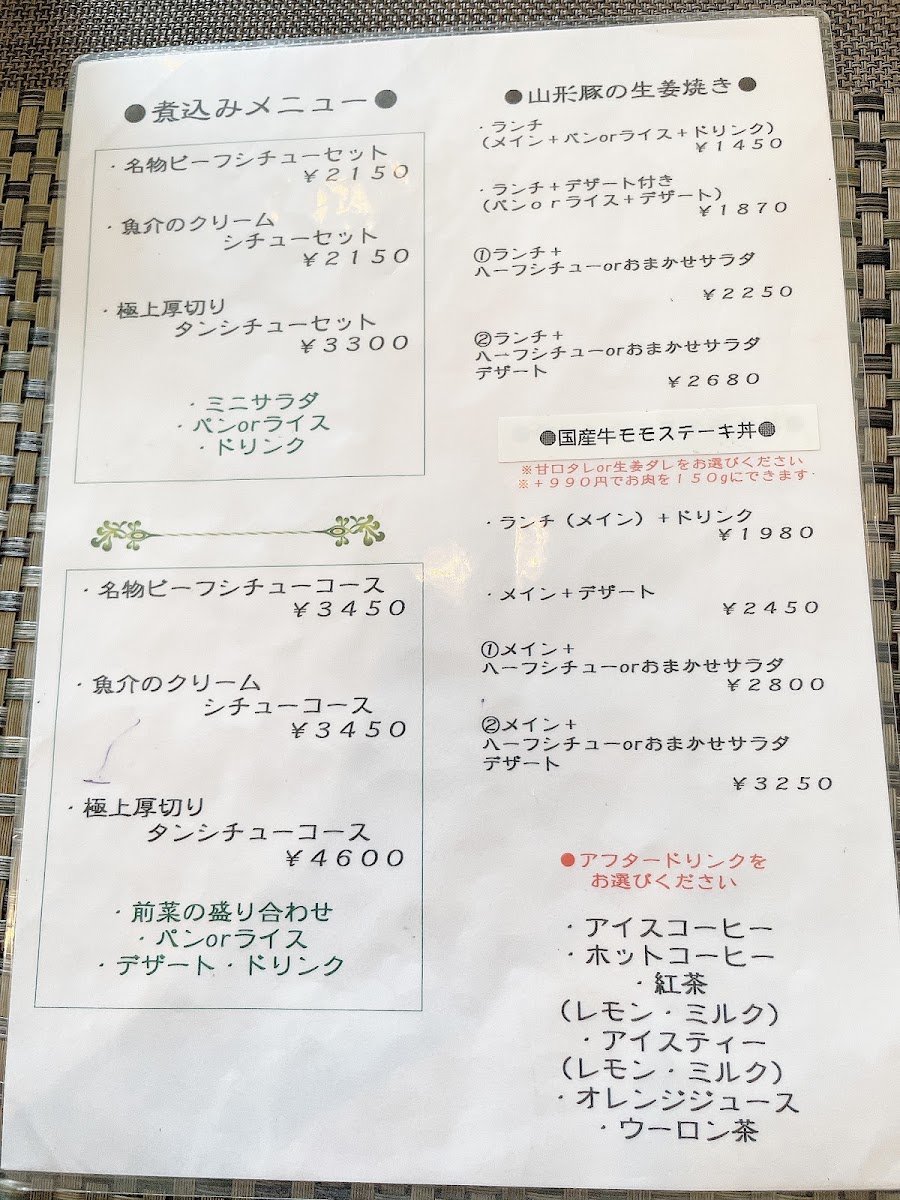 ●煮込みメニュー●
・名物ビーフシチューセット
￥2150
・魚介のクリーム
シチューセット
￥2150
・極上厚切り
タンシチューセット
￥3300
・ミニサラダ
・パンorライス
・ドリンク
・名物ビーフシチューコース
￥3450
・魚介のクリーム
シチューコース
￥3450
・極上厚切り
タンシチューコース
￥4600
・前菜の盛り合わせ
・パンorライス
・デザート・ドリンク
●山形豚の生姜焼き●
・ランチ
(メイン＋パンorライス＋ドリンク)
￥1450
・ランチ＋デザート付き
(パンｏｒライス＋デザート)
￥1870
①ランチ＋
ハーフシチューorおまかせサラダ
￥2250
②ランチ＋
ハーフシチューorおまかせサラダ
デザート
￥2680
●国産牛モモステーキ丼●
※甘口タレor生姜ダレをお選びください
※＋９９０円でお肉を１５０gにできます
・ランチ（メイン）＋ドリンク
￥1980
・メイン＋デザート
￥2450
①メイン＋
ハーフシチューorおまかせサラダ
￥2800
②メイン＋
ハーフシチューorおまかせサラダ
デザート
￥3250
●アフタードリンクを
お選びください
・アイスコーヒー
・ホットコーヒー
・紅茶
(レモン・ミルク)
・アイスティー
(レモン・ミルク)
・オレンジジュース
・ウーロン茶